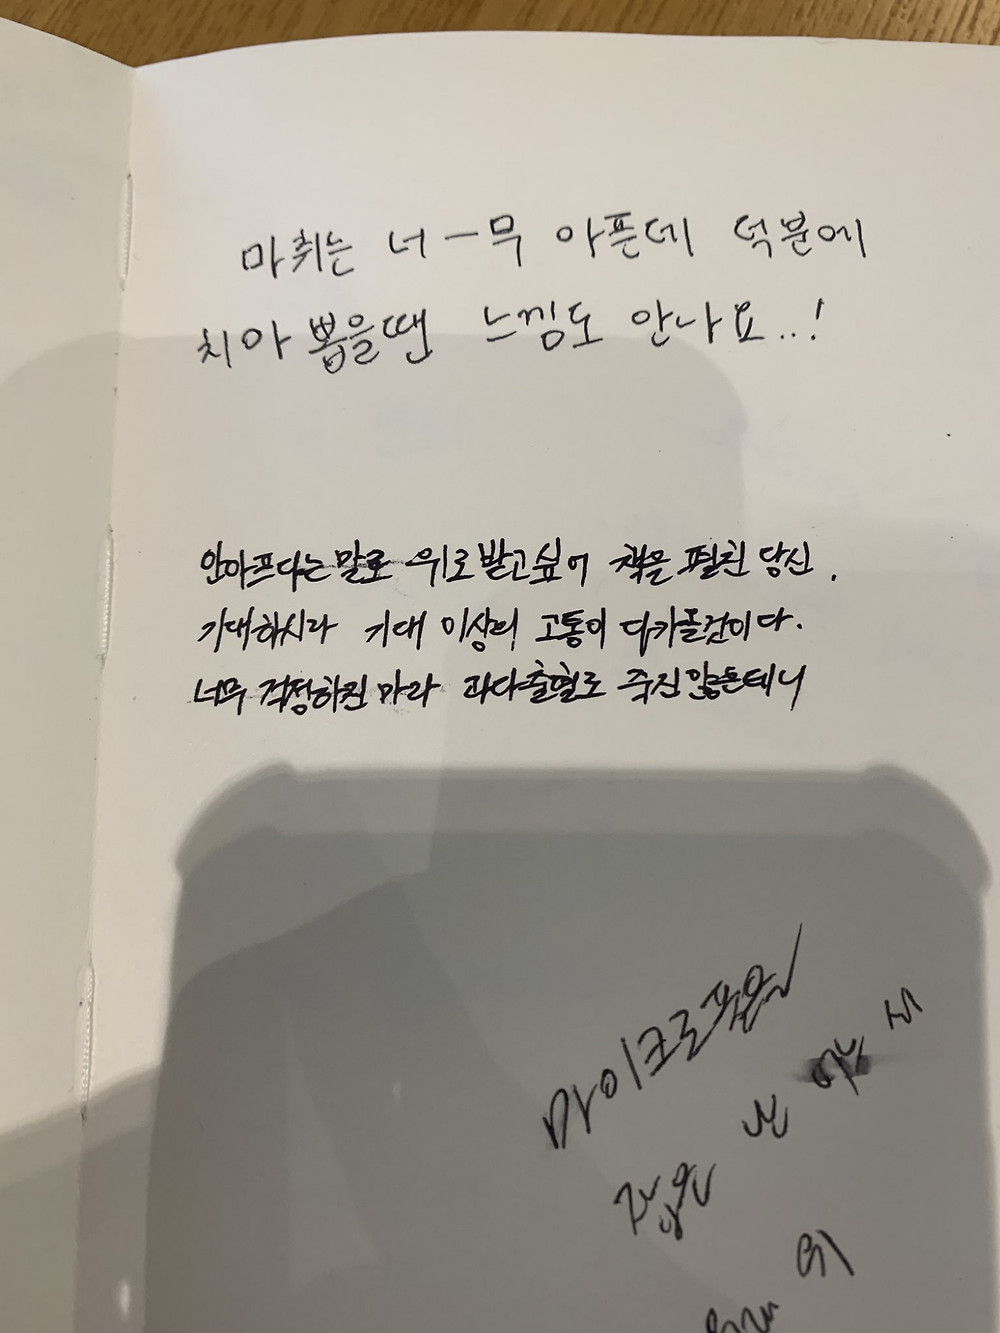 마취는 너ㅡ무 아픈데 덕분에
치아 뽑을땐 느낌도 안나요..!
안아프다는 말로 위로받고싶어 책을 펼친 당신.
기대하시라 기대 이상의 고통이 다가올것이다.
너무 걱정하진 마라 과다출혈로 죽진않을테니
마이크로폰을